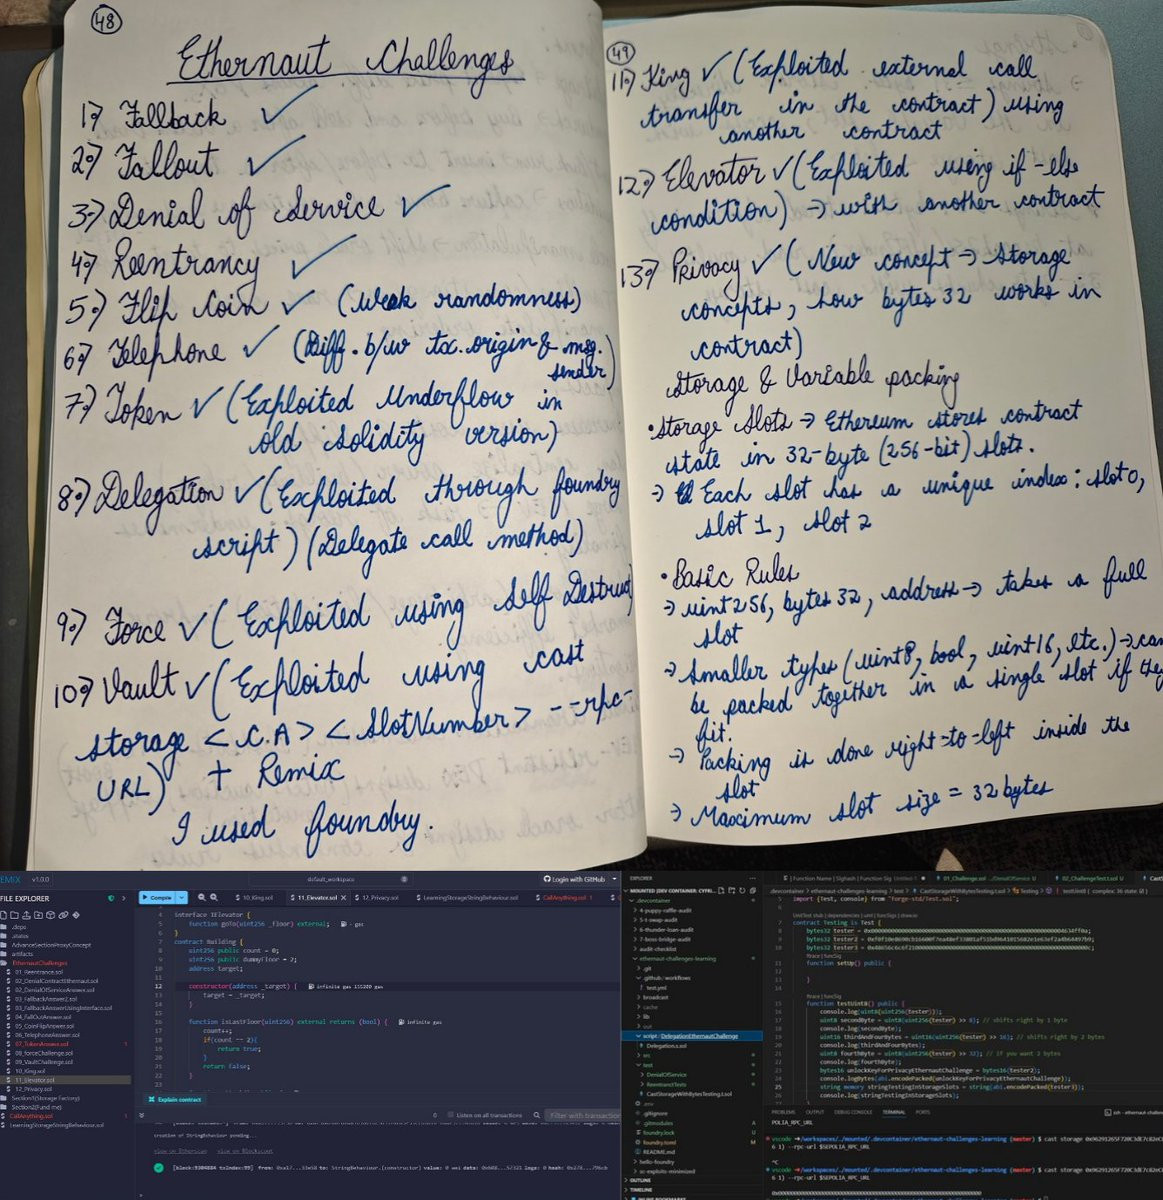 48
Ethernaut Challenges
1) Fallback ✓
2) Fallout ✓
3) Denial of Service ✓
4) Reentrancy ✓
5) Flip Coin ✓ (weak randomness)
6) Telephone ✓ (Diff. b/w tx.origin & msg.
sender)
7) Token ✓ (Exploited Underflow in
old solidity version)
8) Delegation ✓ (Exploited through foundry
script) (Delegate call method)
9) Force ✓ (Exploited using Self Destruct)
10) Vault ✓ (Exploited using cast
storage <C.A> <SlotNumber> --rpc-
URL) + Remix
I used foundry.
49
11) King ✓ (Exploited external call
transfer in the contract) using
another contract
12) Elevator ✓ (Exploited using if-else
condition) → with another contract
13) Privacy ✓ (New concept → Storage
concepts, how bytes 32 works in
contract)
Storage & Variable packing
• Storage Slots → Ethereum stores contract
state in 32-byte (256-bit) slots.
→ Each slot has a unique index: slot 0,
slot 1, slot 2
• Basic Rules
→ uint256, bytes32, address → takes a full
slot
→ Smaller types (uint8, bool, uint16, etc.) → can
be packed together in a single slot if they
fit.
→ Packing is done right-to-left inside the
slot
→ Maximum slot size = 32 bytes
EMIX v1.0.0
default_workspace
Login with GitHub
FILE EXPLORER
.deps
.states
AdvanceSectionProxyConcept
artifacts
EthernautChallenges
01_Reentrance.sol
02_DenialContractEthernaut.sol
02_DenialOfServiceAnswer.sol
03_FallbackAnswer2.sol
03_FallbackAnswerUsingInterface.sol
04_FallOutAnswer.sol
05_CoinFlipAnswer.sol
06_TelephoneAnswer.sol
07_TokenAnswer.sol 1
08_forceChallenge.sol
09_VaultChallenge.sol
10_King.sol
11_Elevator.sol
12_Privacy.sol
Section1(Storage Factory)
Section2(Fund me)
CallAnything.sol 1
LearningStorageStringBehaviour.sol
Compile
10_King.sol
11_Elevator.sol X
12_Privacy.sol
LearningStorageStringBehaviour.sol
CallAnything.sol 1
4 interface IElevator {
5 function goTo(uint256 _floor) external; - gas
6 }
7 contract Building {
8 uint256 public count = 0;
9 uint256 public dummyFloor = 2;
10 address target;
11
12 constructor(address _target) { infinite gas 111200 gas
13 target = _target;
14 }
15
16 function isLastFloor(uint256) external returns (bool) { infinite gas
17 count++;
18 if(count == 2){
19 return true;
20 }
21 return false;
22 }
23
Explain contract
0 Listen on all transactions
Filter with transaction
creation of StringBehaviour pending...
view on Etherscan view on Blockscout
EXPLORER
.devcontainer
4-puppy-raffle-audit
5-t-swap-audit
6-thunder-loan-audit
7-boss-bridge-audit
audit-checklist
ethernaut-challenges-learning
.git
.github/workflows
test.yml
broadcast
cache
lib
out
script/DelegationEthernautChallenge
Delegation.s.sol
src
test
DenialOfService
ReentrancyTests
CastStorageWithBytesTesting.t.sol
.env
.gitignore
.gitmodules A
foundry.lock U
foundry.toml M
README.md
hello-foundry
sc-exploits-minimized
OUTLINE
TIMELINE
01_Challenge.sol
02_ChallengeTest.t.sol U
import {Test, console} from "forge-std/Test.sol";
contract Testing is Test {
function setUp() public {
}
function testUint8() public {
console.log(uint8(uint256(tester)));
uint8 secondByte = uint8(uint256(tester) >> 8); // shifts right by 1 byte
console.log(secondByte);
uint16 thirdAndFourBytes = uint16(uint256(tester) >> 16); // shifts right by 2 bytes
console.log(thirdAndFourBytes);
uint8 fourthByte = uint8(uint256(tester) >> 32); // if you want 3 bytes
console.log(fourthByte);
bytes16 unlockKeyForPrivacyEthernautChallenge = bytes16(tester2);
console.logBytes(abi.encodePacked(unlockKeyForPrivacyEthernautChallenge));
string memory stringTestingInStorageSlots = string(abi.encodePacked(tester3));
console.log(stringTestingInStorageSlots);
PROBLEMS OUTPUT DEBUG CONSOLE TERMINAL PORTS
POLIA_RPC_URL
6 1) --rpc-url $SEPOLIA_RPC_URL
^C
6 1) --rpc-url $SEPOLIA_RPC_URL